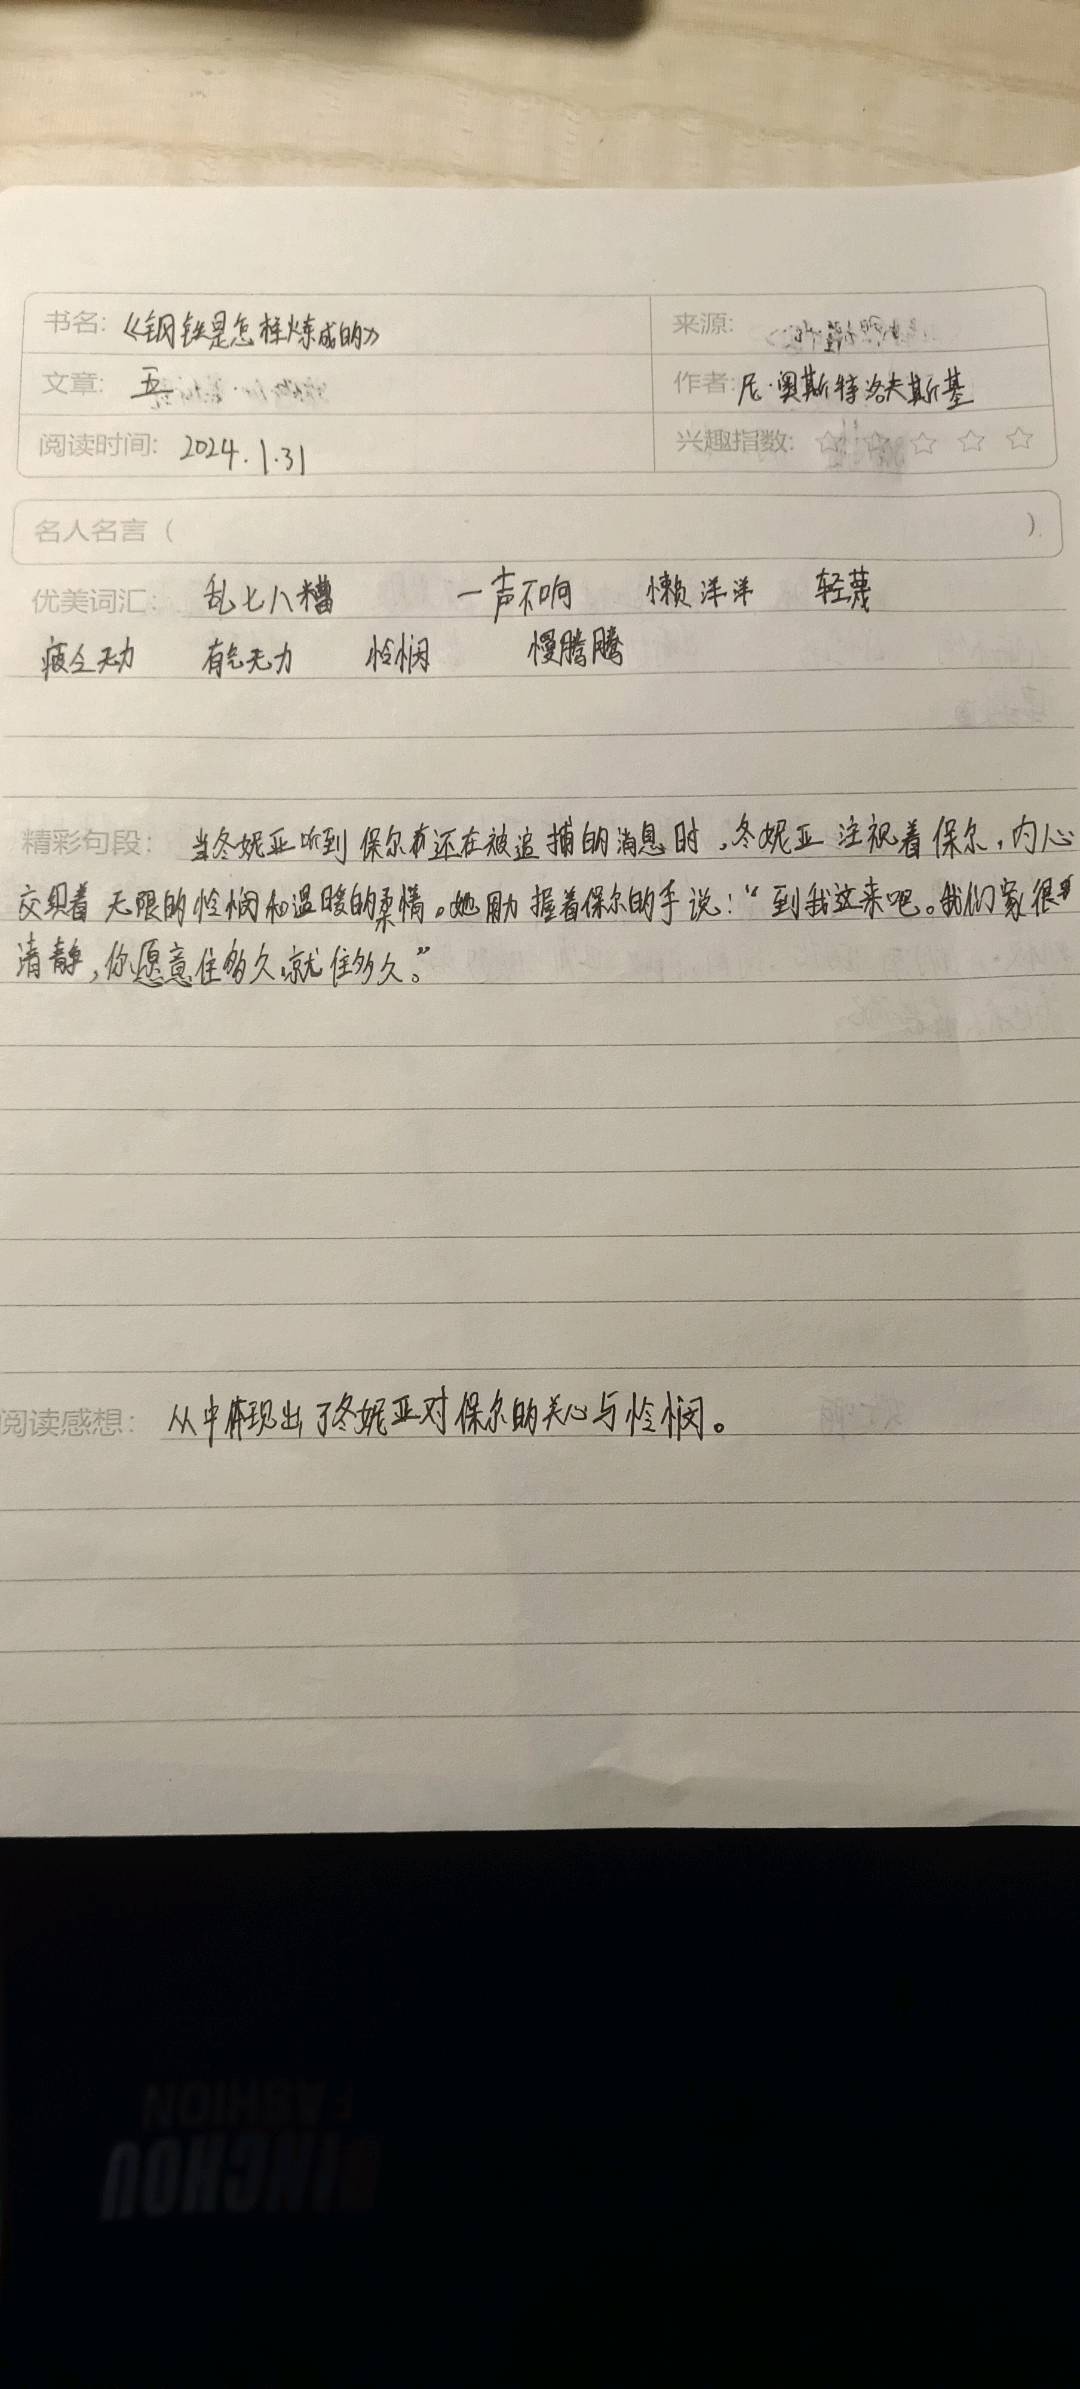 书名:《钢铁是怎样炼成的》 来源:
文章: 五 作者:尼·奥斯特洛夫斯基
阅读时间: 2024.1.31 兴趣指数: ☆ ☆ ☆ ☆ ☆
名人名言 ( )
优美词汇: 乱七八糟 一声不响 懒洋洋 轻蔑
疲乏无力 有气无力 怜悯 慢腾腾
精彩句段: 当冬妮亚听到保尔还在被追捕的消息时,冬妮亚注视着保尔,内心
交织着无限的怜悯和温暖的柔情。她用力握着保尔的手说:“到我这来吧。我们家很
清静,你愿意住多久,就住多久。”
阅读感想: 从中体现出了冬妮亚对保尔的关心与怜悯。
FASHION